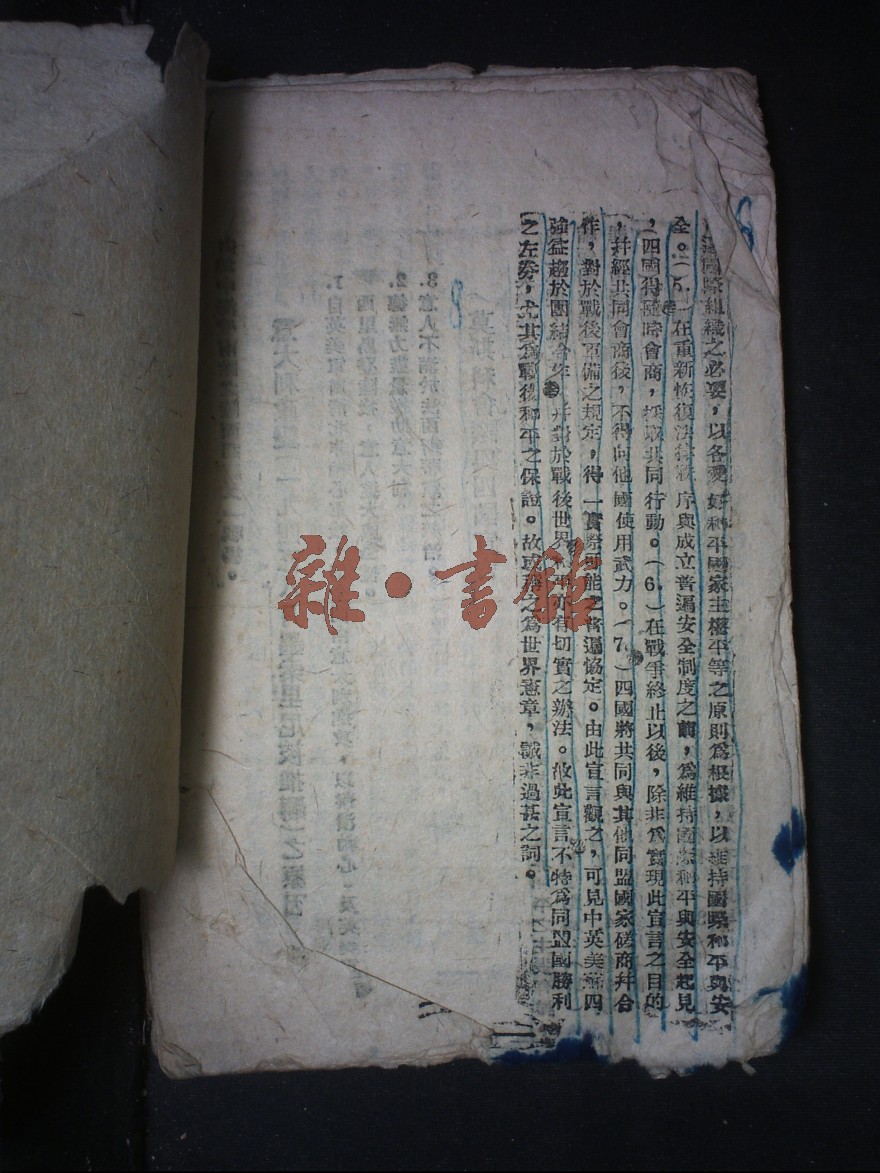 國際組織之必要，以各愛好和平國家主權平等之原則爲根據，以維持國際和平與安
全。（5.）在重新恢復法律秩序與成立普遍安全制度之前，爲維持國際和平與安全起見
，四國得隨時會商，採取共同行動。（6.）在戰爭終止以後，除非爲實現此宣言之目的
，并經共同會商後，不得向他國使用武力。（7.）四國將共同與其他同盟國家磋商幷合
作，對於戰後軍備之規定，得一實際可能之普遍協定。由此宣言觀之，可見中英美蘇四
強益趨於團結合作，幷對於戰後世界和平亦有切實之辦法。故此宣言不特爲同盟國勝利
之左劵，尤其爲戰後和平之保證。故或稱之爲世界憲章，諴非過甚之詞。
雜·書館